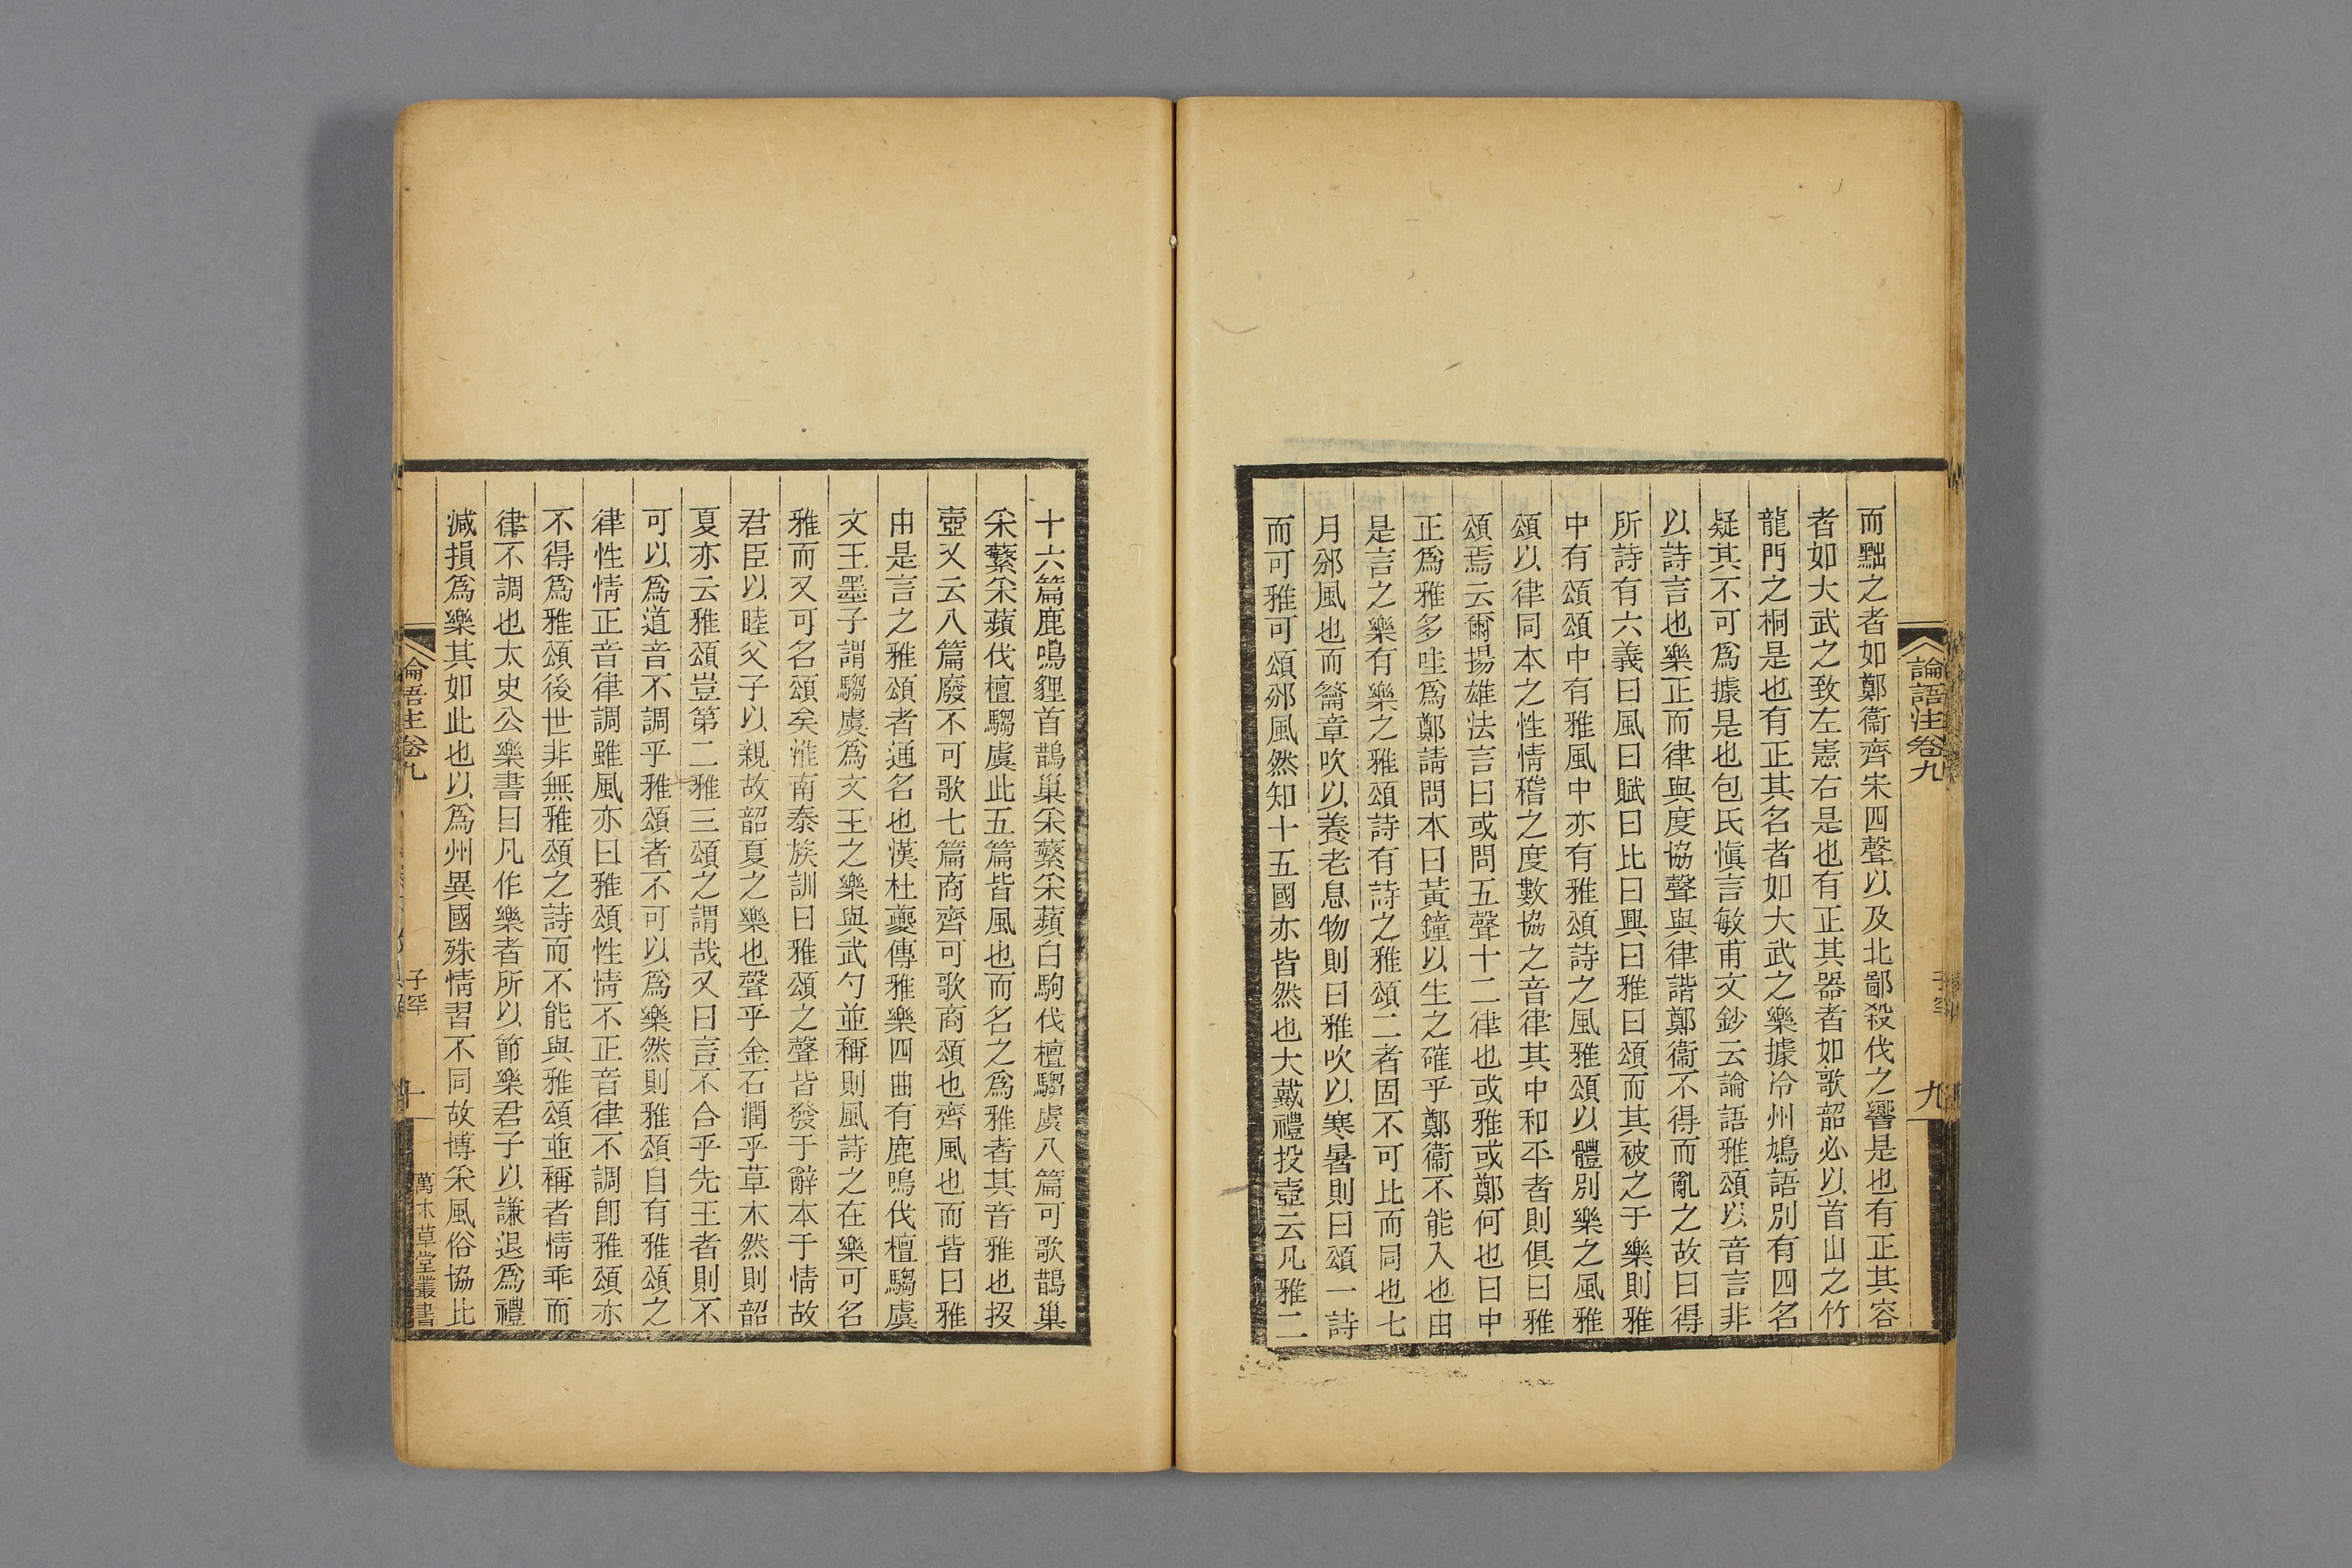 論語注卷九
子罕
九
而黜之者如鄭衞齊宋四聲以及北鄙殺伐之響是也有正其容
者如大武之致左憲右是也有正其器者如歌韶必以首山之竹
龍門之桐是也有正其名者如大武之樂據泠州鳩語別有四名
疑其不可爲據是也包氏愼言敏甫文鈔云論語雅頌以音言非
以詩言也樂正而律與度協聲與律諧鄭衞不得而亂之故曰得
所詩有六義曰風曰賦曰比曰興曰雅曰頌而其被之于樂則雅
中有頌頌中有雅風中亦有雅頌詩之風雅頌以體別樂之風雅
頌以律同本之性情稽之度數協之音律其中和平者則俱曰雅
頌焉云爾揚雄法言曰或問五聲十二律也或雅或鄭何也曰中
正爲雅多哇爲鄭請問本曰黃鐘以生之確乎鄭衞不能入也由
是言之樂有樂之雅頌詩有詩之雅頌二者固不可比而同也七
月邠風也而籥章吹以養老息物則曰雅吹以寒暑則曰頌一詩
而可雅可頌邠風然知十五國亦皆然也大戴禮投壺云凡雅二
十六篇鹿鳴貍首鵲巢采蘩采蘋白駒伐檀騶虞八篇可歌鵲巢
采蘩采蘋伐檀騶虞此五篇皆風也而名之爲雅者其音雅也投
壺又云八篇廢不可歌七篇商齊可歌商頌也齊風也而皆曰雅
由是言之雅頌者通名也漢杜夔傳雅樂四曲有鹿鳴伐檀騶虞
文王墨子謂騶虞爲文王之樂與武勺並稱則風詩之在樂可名
雅而又可名頌矣淮南泰族訓曰雅頌之聲皆發于辭本于情故
君臣以睦父子以親故韶夏之樂也聲乎金石潤乎草木然則韶
夏亦云雅頌豈第二雅三頌之謂哉又曰言不合乎先王者則不
可以爲道音不調乎雅頌者不可以爲樂然則雅頌自有雅頌之
律性情正音律調雖風亦曰雅頌性情不正音律不調卽雅頌亦
不得爲雅頌後世非無雅頌之詩而不能與雅頌並稱者情乖而
律不調也太史公樂書曰凡作樂者所以節樂君子以謙退爲禮
減損爲樂其如此也以爲州異國殊情習不同故博采風俗協比
論語注卷九
子罕
十
萬木草堂叢書